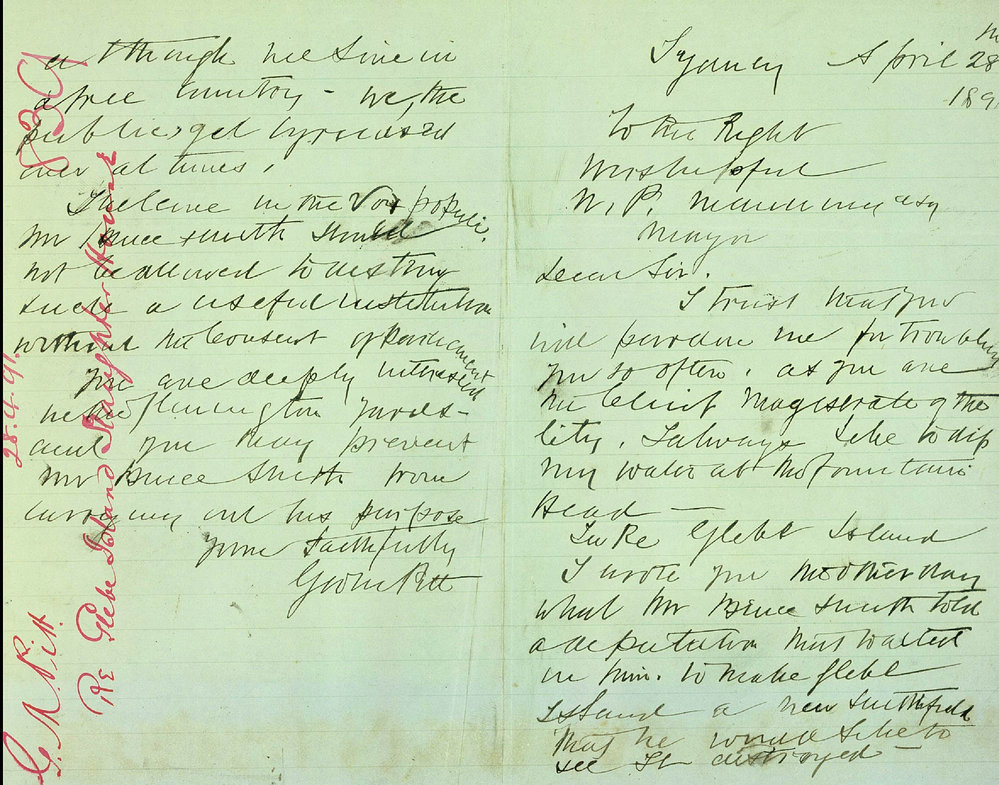 Sydney April 28
189
To the Right
Worshipful
W. P. Manning esq
Mayor
Dear Sir.
I trust that you
will pardon me for troubling
you so often. as you are
the Chief Magistrate of the
City. I always like to dip
my water at the Fountain
Head —
In Re Glebe Island
I wrote you the other day
what Mr Bruce Smith told
a deputation that waited
on him. to make Glebe
Island a new Smithfield
that he would like to
see It destroyed —
although we live in
a free Country - we, the
public get
over at times.
I believe in the Vox populi.
Mr Bruce Smith should
not be allowed to destroy
such a useful institution
without the Consent of Parliament
you are deeply interested
in the Flemington Yards -
and you may prevent
Mr Bruce Smith from
carrying out his purpose
Yours Faithfully
Geo M Pitt
G. M. Pitt.
28.4.91.
Re Glebe Island Slaughter House